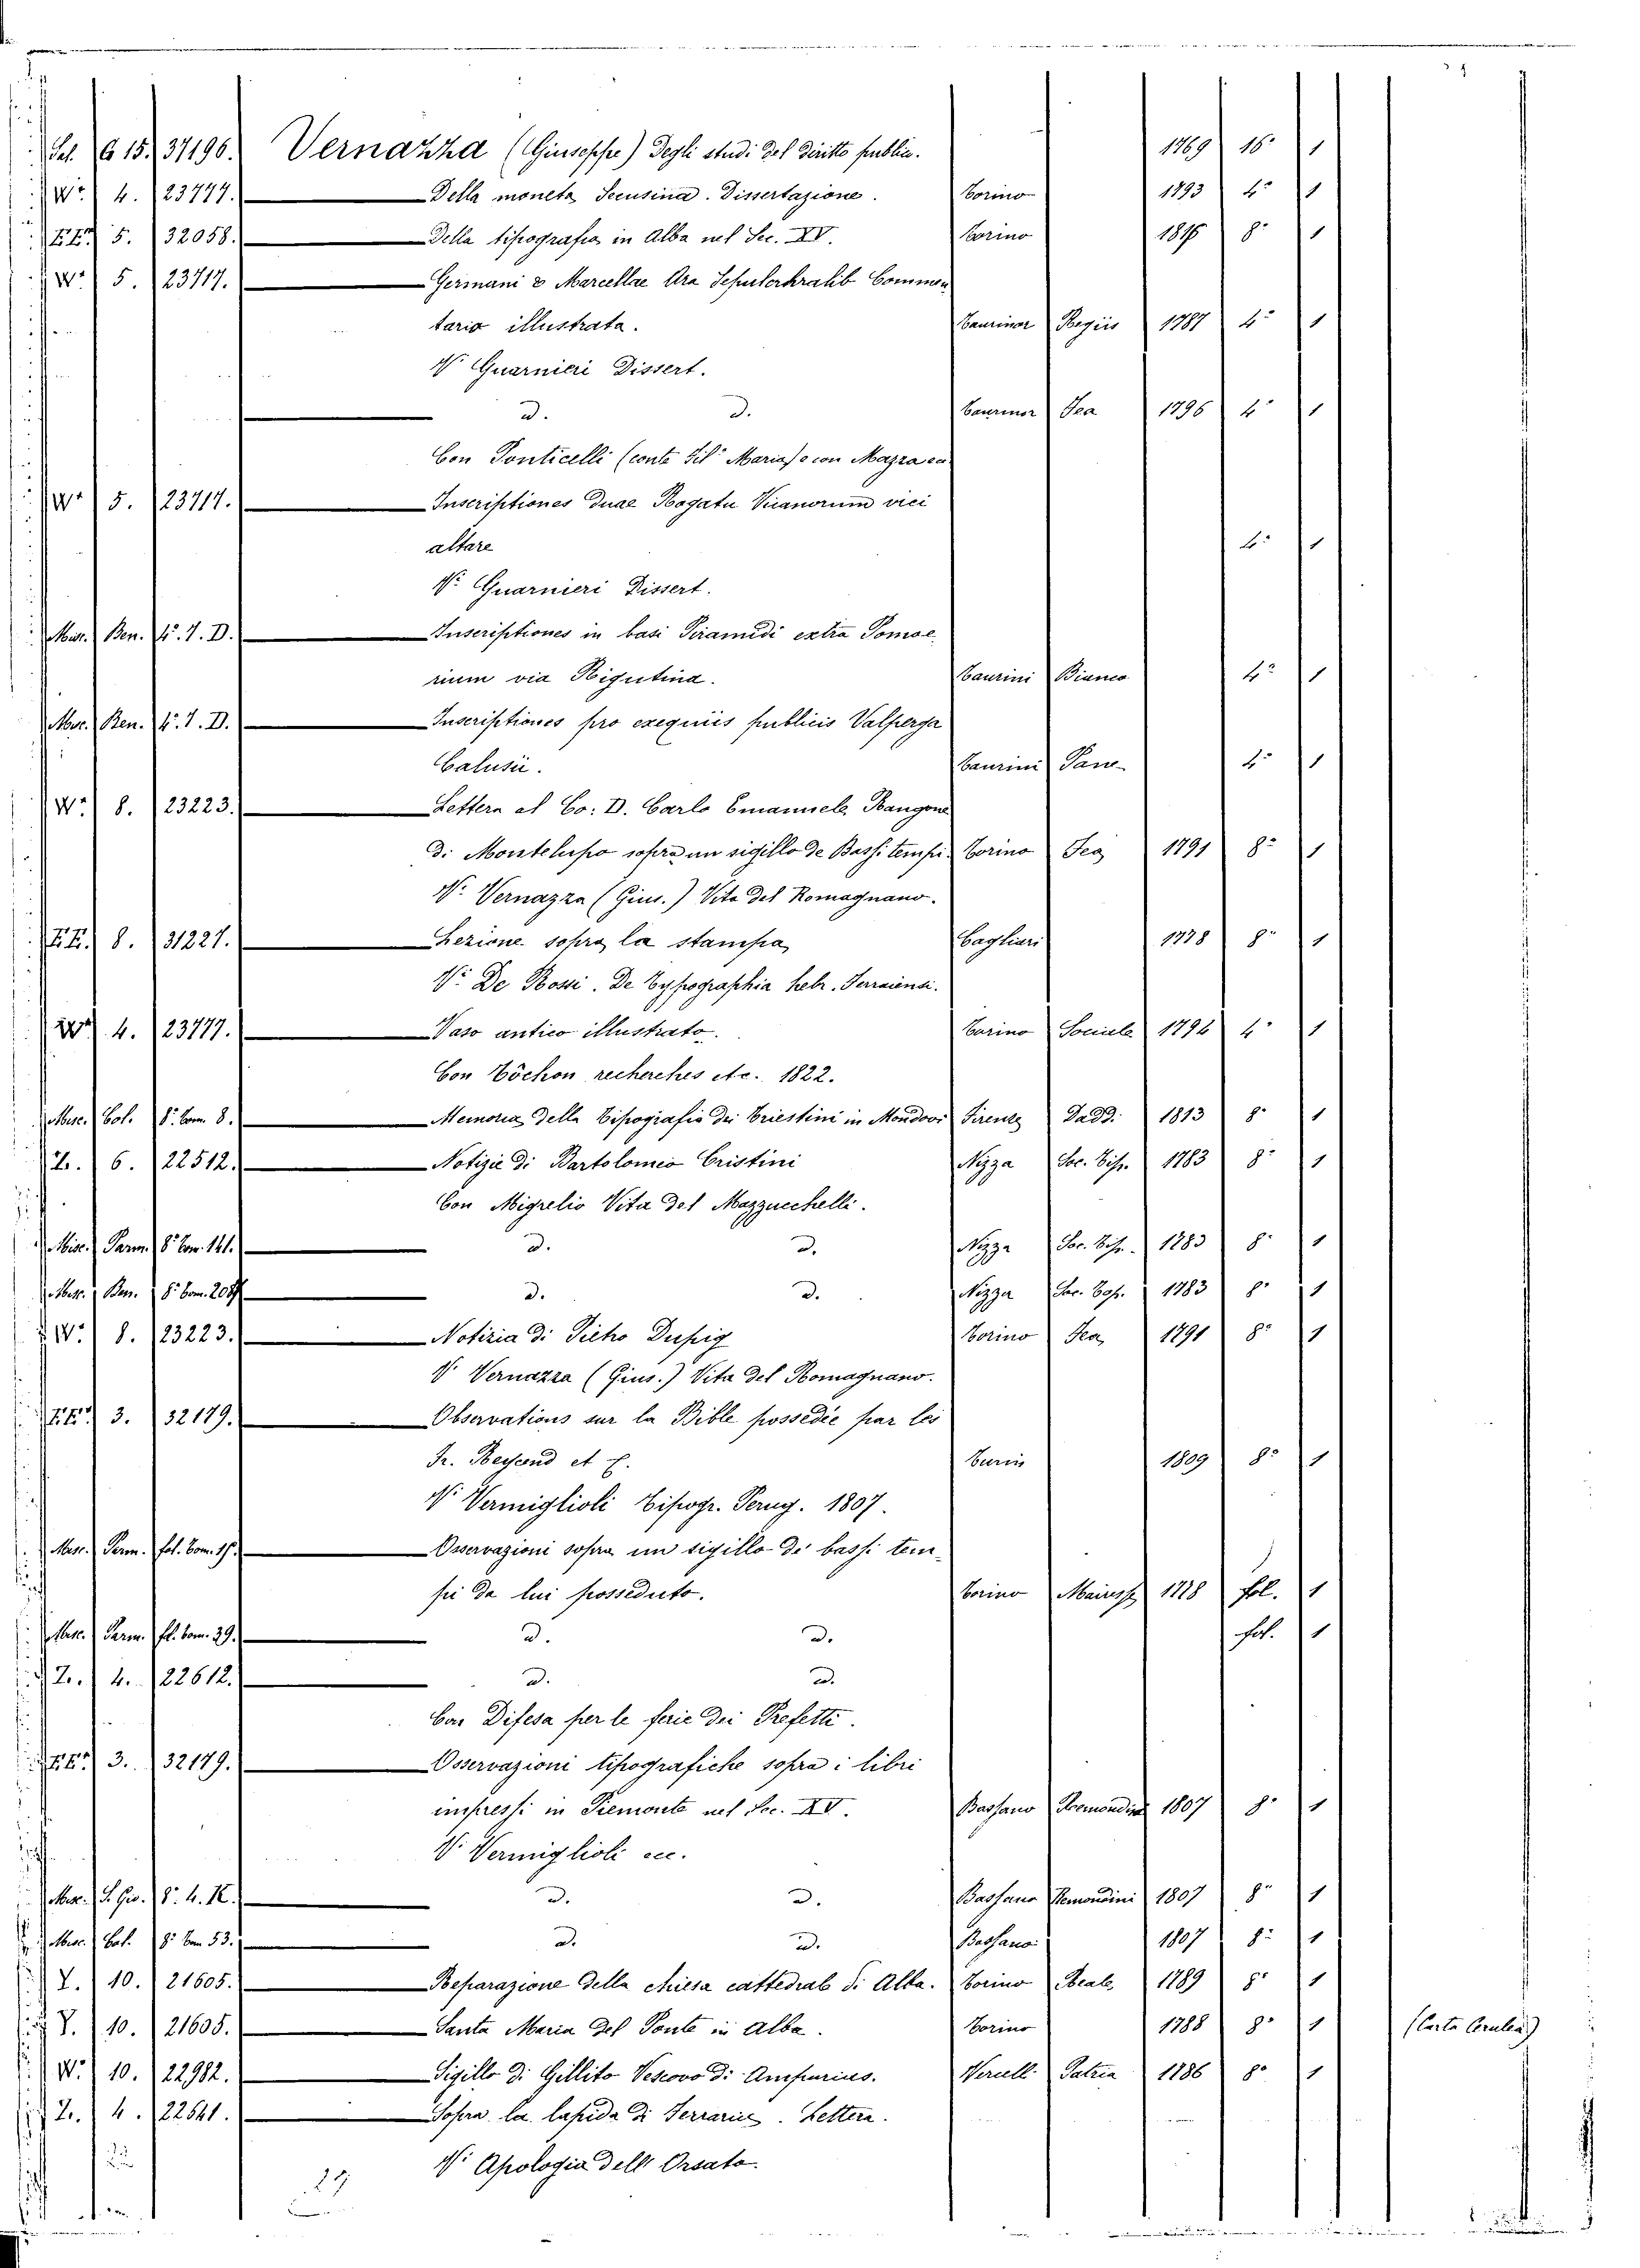 Sal. G 15. 37196. Vernazza (Giuseppe) Degli studi del diritto public. 1769 16° 1
W.° 4. 23777. Della moneta Secusina. Dissertazione. Torino 1793 4° 1
E.E.° 5. 32058. Della tipografia in Alba nel Sec. XV. Torino 1815 8° 1
W.° 5. 23717. Germani & Marcellae Ara Commen
tario illustrata. Taurinor Regiis 1787 4° 1
V. Guarnieri Dissert.
d. d. Taurinor Fea 1796 4° 1
Con Ponticelli (conte Sil° Mario) o con Mazza ec.
W.° 5. 23717. Inscriptiones duae Pagatu Vicanorum vici
altare 4° 1
V. Guarnieri Dissert.
Misc. Ben. 4°. 1. D. Inscriptiones in basi Piramidi extra Pomoe
rium via Rigutina. Taurini Bianco 4° 1
Misc. Ben. 4°. 1. D. Inscriptiones pro exequiis publicis Valperga
Calusii. Taurini Pane 4° 1
W.° 8. 23223. Lettera al Co: D. Carlo Emanuele Rangone
di Montelupo sopra un sigillo de Bassi tempi. Torino Fea 1791 8° 1
V. Vernazza (Gius.) Vita del Romagnano.
E.E. 8. 31227. Lezione sopra la stampa Cagliari 1778 8° 1
V. De Rossi. De Typographia hebr. Ferrariensi.
W. 4. 23777. Vaso antico illustrato. Torino Sociale 1794 4° 1
Con Töchon recherches etc. 1822.
Misc. Col. 8° tom. 8. Memoria della Tipografia dei Triestini in Mondovi Firenze Daddi 1813 8° 1
Z. 6. 22512. Notizie di Bartolomeo Cristini Nizza Soc. Tip. 1783 8° 1
Con Migrelio Vita del Mazzucchelli.
Misc. Parm. 8° tom. 141. d. d. Nizza Soc. Tip. 1783 8° 1
Misc. Ben. 8° tom. 208 d. d. Nizza Soc. Tip. 1783 8° 1
W. 8. 23223. Notizia di Pietro Dupig Torino Fea 1791 8° 1
V. Vernazza (Gius.) Vita del Romagnano.
E.E.° 3. 32179. Observations sur la Bible possedée par les
Fr. et Turin 1809 8° 1
V. Vermiglioli Tipogr. Perug. 1807.
Misc. Parm. fol. tom. 17. Osservazioni sopra un sigillo de' bassi tem
pi da lui posseduto. Torino Mairesse 1778 fol. 1
Misc. Parm. fol. tom. 39. d. d. fol. 1
Z. 4. 22612. d. d.
Con Difesa per le ferie dei Prefetti.
E.E.° 3. 32179. Osservazioni tipografiche sopra i libri
impressi in Piemonte nel Sec. XV. Bassano Remondini 1807 8° 1
V. Vermiglioli ec.
Misc. S. Gio. 8°. 4. K. d. d. Bassano Remondini 1807 8° 1
Misc. Col. 8° tom 53. d. d. Bassano 1807 8° 1
Y. 10. 21605. Reparazione della chiesa cattedrale di Alba. Torino Reale 1789 8° 1
Y. 10. 21605. Santa Maria del Ponte in Alba. Torino 1788 8° 1 (Carta Cerulea)
W. 10. 22982. Sigillo di Gillito Vescovo di Ampurius. Vercelli Patria 1786 8° 1
Z. 4. 22641. Sopra la lapida di Ferrarius. Lettera.
V. Apologia dell' Orsato.
29